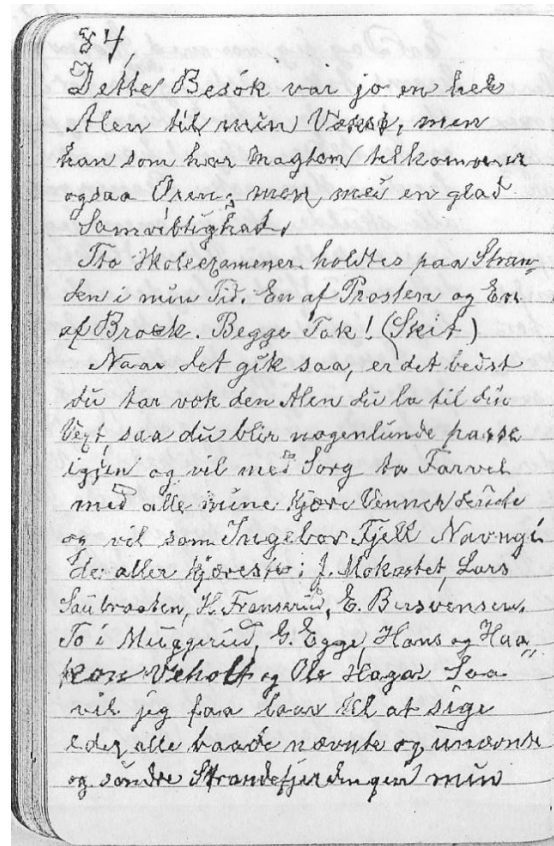 84,
Dette Besök var jo en hel
Alen til min Vext, men
han som har Magten tilkommer
ogsaa Æren; men med en glad
Samvittighed.
To Skoleexamener holdtes paa Stran-
den i min Tid. En af Prosten og En
af Brock. Begge Tak! (Skit)
Naar det gik saa, er det bedst
du tar vek den Alen du la til din
Vext, saa du blir nogenlunde passe
igjen og vil med Sorg ta Farvel
med alle mine kjære Venner
og vil som Ingebor Fjell Navngi
de aller kjæreste: J. Lars
Saubraaten, H. Franserud, E. Busvensen.
To i Muggerud, G. Egge, Hans og Haa-
kon Veholt og Ole Hagar Saa
vil jeg faa Lov til at sige
eder alle baade nævnte og unævnte
og söndre Strandefjerdingen min